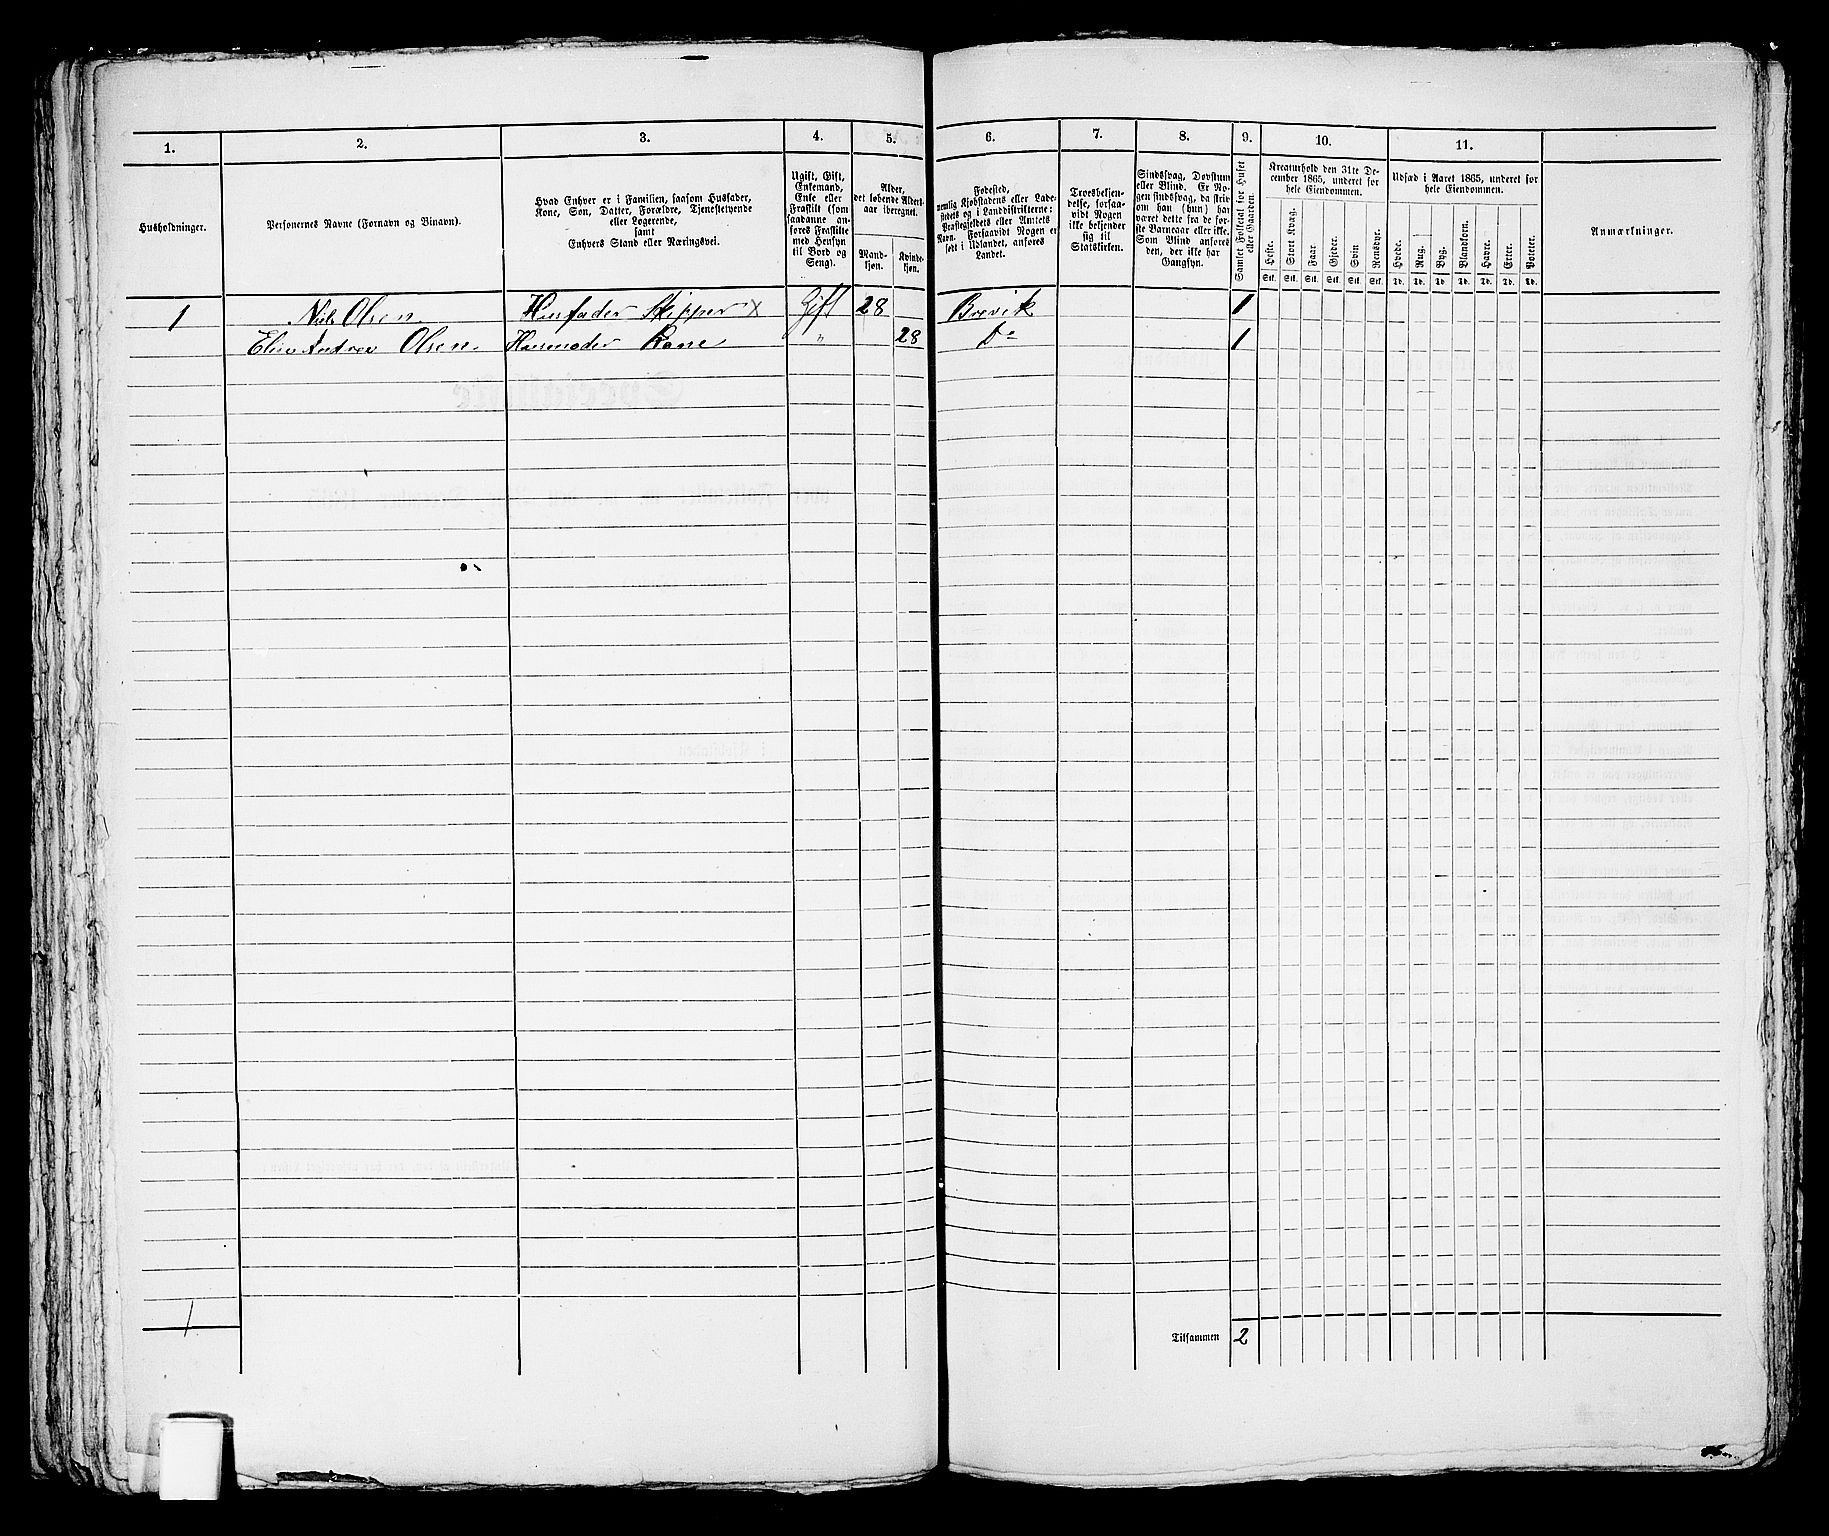 1.
2.
3.
4.
5.
6.
7.
8.
9.
10.
11.
Husholdninger.
Personernes Navne (Fornavn og Binavn).
Hvad Enhver er i Familien, saasom Husfader,
Kone, Søn, Datter, Forældre, Tjenestetyende
eller Logerende,
samt
Enhvers Stand eller Næringsvei.
Ugift, Gift,
Enkemand,
Enke eller
Fraskilt (som
saadanne an-
føres Fraskilte
med Hensyn
til Bord og
Seng).
Alder,
det løbende Alders-
aar iberegnet.
Mand-
kjøn.
Kvinde-
kjøn.
Fødested,
nemlig Kjøbstadens eller Lade-
stedets og i Landdistrikterne:
Præstegjeldets eller Amtets
Navn. Forsaavidt Nogen er
født i Udlandet, anføres
Landet.
Troesbekjen-
delse, forsaa-
vidt Nogen
ikke bekjender
sig til
Statskirken.
Sindssvag, Døvstum
eller Blind. Er No-
gen sindssvag, da skriv
om han (hun) har
været dette fra de før-
ste Barneaar eller ikke.
Som Blind anføres
den, der ikke har
Gangsyn.
Samlet Folketal for Huset
eller Gaarden.
Kreaturhold den 31te De-
cember 1865, underet for
hele Eiendommen.
Heste.
Stort Kvæg.
Faar.
Gjeder.
Svin
Rensdyr.
Stk. Stk. Stk. Stk. Stk. Stk.
Udsæd i Aaret 1865, underet for
hele Eiendommen.
Hvede.
Rug.
Byg.
Blandkorn.
Havre.
Erter.
Poteter.
Td. Td. Td Td. Td. Td. Td.
Anmærkninger.
1 Niels Olsen Husfader Skipper x Gift 28 Brevik 1
Olsen. Husmoder Kone " 28 Do 1
1
Tilsammen 2